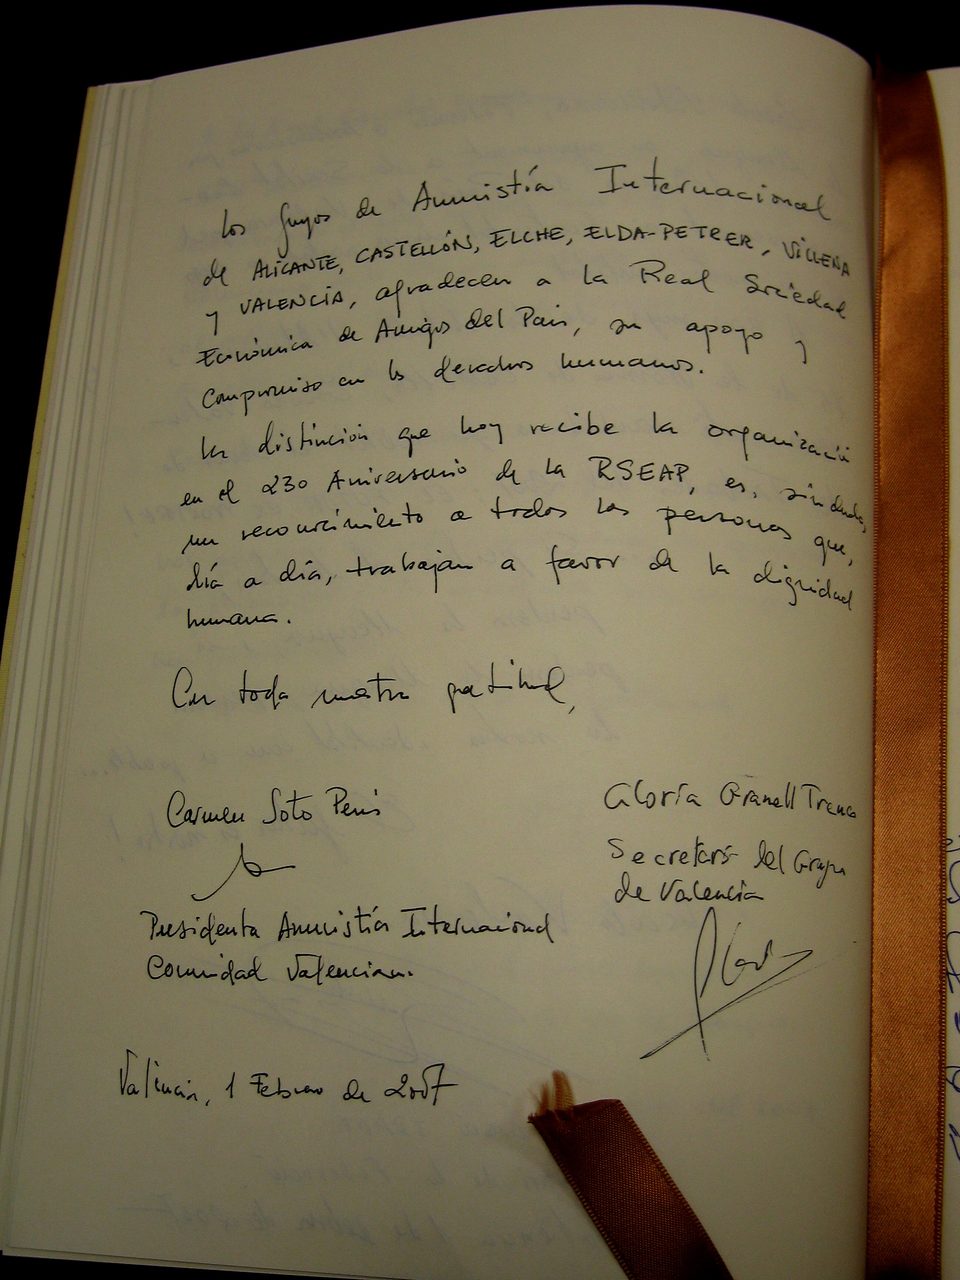 Los grupos de Amnistía Internacional
de ALICANTE, CASTELLÓN, ELCHE, ELDA-PETRER, VILLENA
y VALENCIA, agradecen a la Real Sociedad
Económica de Amigos del País, su apoyo y
compromiso en los derechos humanos.
La distinción que hoy recibe la organización
en el 230 Aniversario de la RSEAP, es, sin dudas,
un reconocimiento a todas las personas que,
día a día, trabajan a favor de la dignidad
humana.
Con toda nuestra gratitud,
Carmen Soto
Presidenta Amnistía Internacional
Comunidad Valenciana.
Gloria Granell
Secretaria del Grupo
de Valencia
Valencia, 1 Febrero de 2007